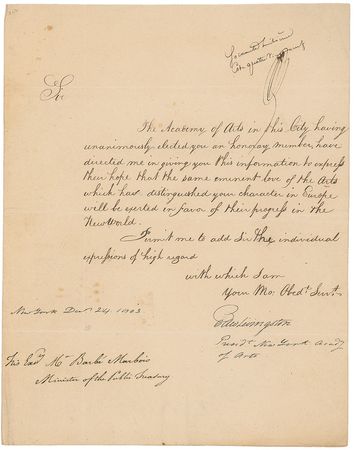 Sir
The Academy of Arts in this City having
unanimously elected you an honorary member, have
directed me in giving you this information to express
their hope that the same eminent love of the Arts
which has distinguished your character in Europe
will be exerted in favor of their progress in the
New World.
Permit me to add Sir the individual
expressions of high regard
with which I am
Your Mo. Obed. Servt.
New York Decr. 24. 1803
Edw Livingston
Presdt. New York Acady
of Arts
His Excy. Mr Barbé Marbois
Minister of the Public Treasury